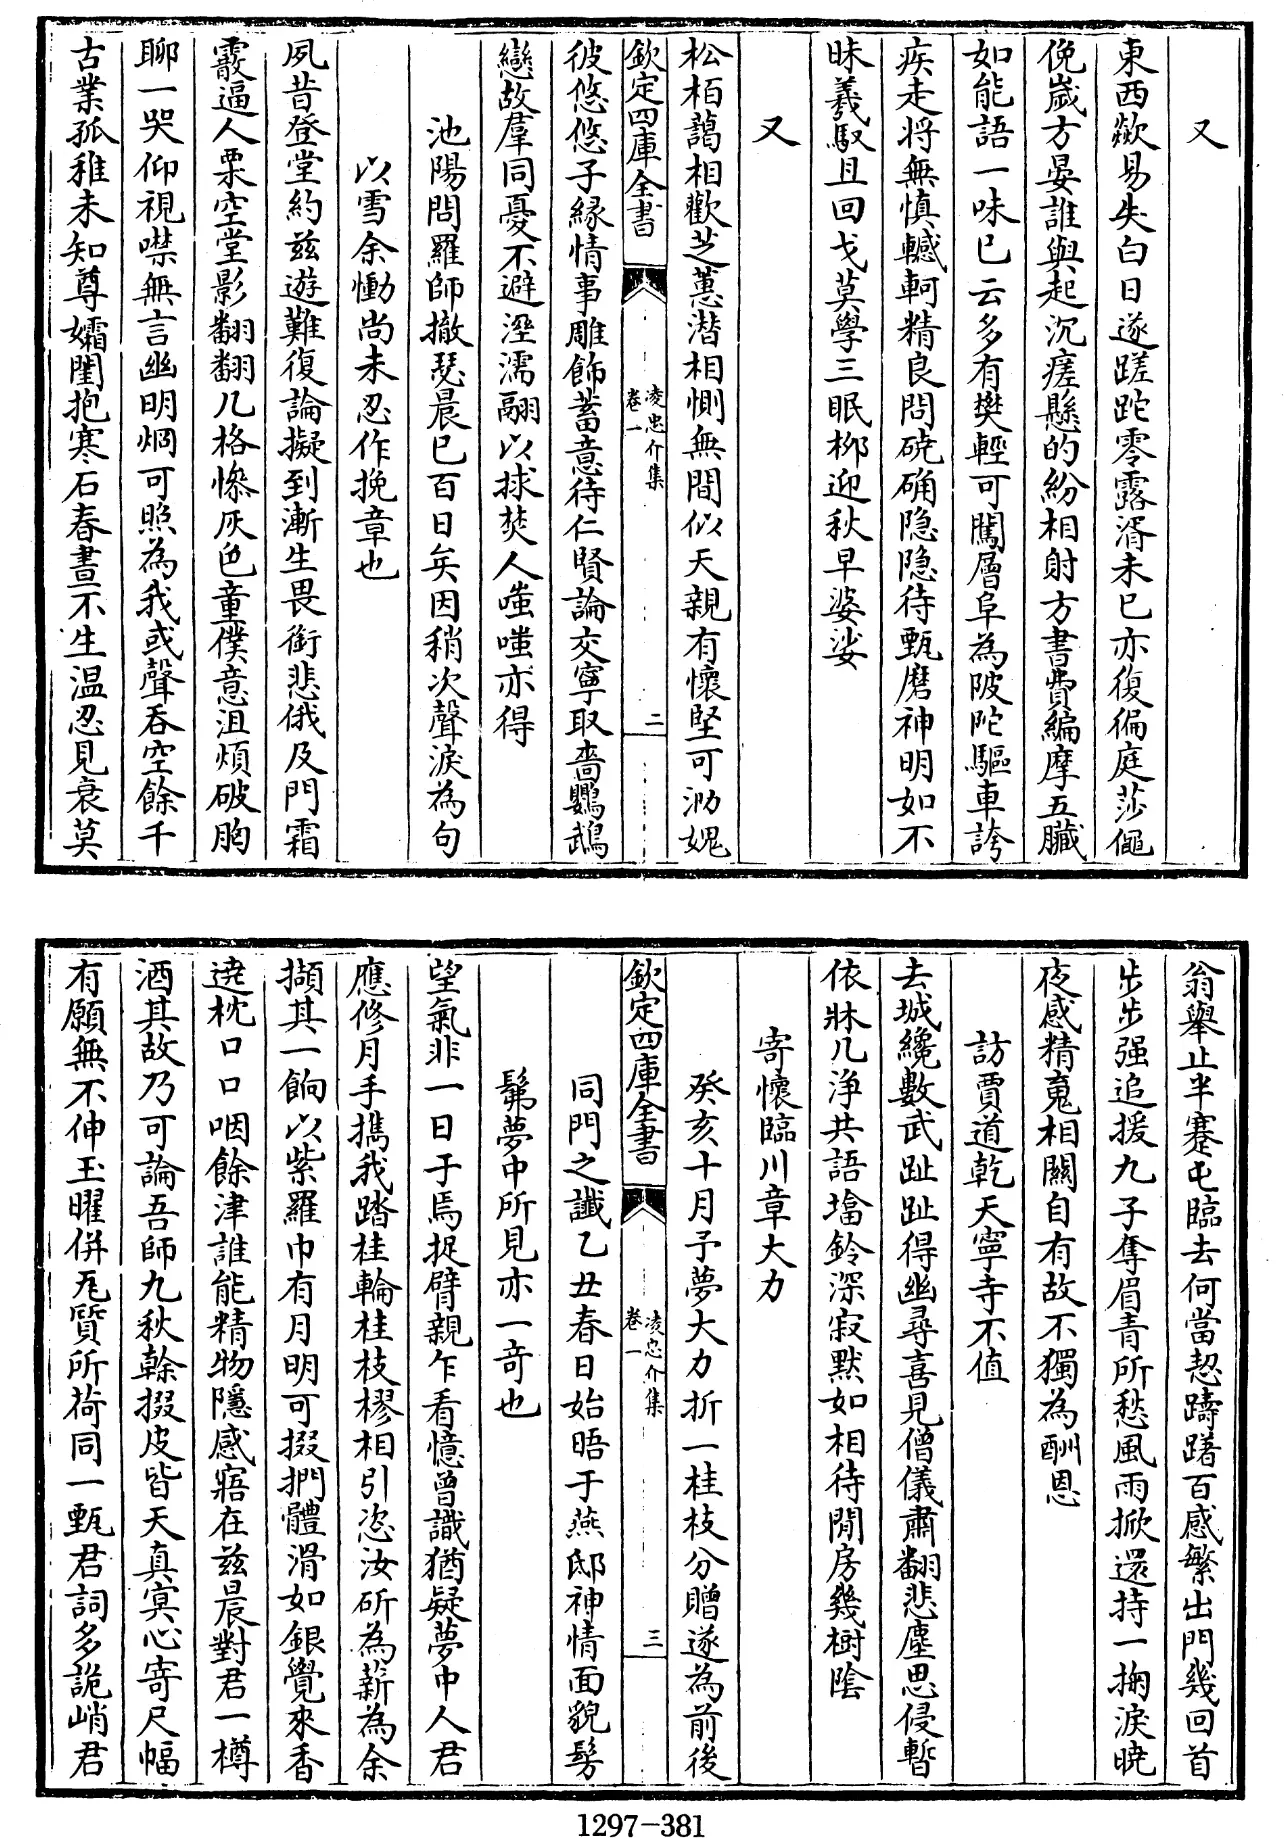 又
東西歘易失白日遂蹉跎零露湑未已亦復徧庭莎僶
俛嵗方晏誰與起沉瘥懸的紛相射方書費編摩五臟
如能語一味已云多有樊輕可闖層阜為陂陀驅車誇
疾走將無慎轗軻精良問磽确隐隐待甄磨神明如不
昧羲馭且回戈莫學三眠栁迎秋早婆娑
又
松栢藹相歡芝蕙潜相惻無間似天親有懷堅可泐媿
欽定四庫全書
凌忠介集
卷一
二
彼悠悠子緣情事雕飾蓄意待仁賢論交寧取啬鸚鵡
戀故羣同憂不避溼濡翮以捄焚人嗤嗤亦得
池陽問羅師撤瑟晨已百日矣因稍次聲淚為句
以雪余慟尚未忍作挽章也
夙昔登堂約兹遊難復論擬到漸生畏銜悲俄及門霜
霰逼人栗空堂影翻翻几格慘灰色童僕意沮煩破胸
聊一哭仰視噤無言幽明炯可照為我或聲吞空餘千
古業孤稚未知尊孀閨抱寒石春晝不生温忍見衰莫
翁舉止半蹇屯臨去何當恝躊躇百感繁出門幾回首
步步强追援九子奪眉青所愁風雨掀還持一掬淚曉
夜感精䰟相關自有故不獨為酬恩
訪賈道乾天寧寺不值
去城纔數武趾趾得幽尋喜見僧儀肅翻悲塵思侵暫
依牀几浄共語墖鈴深寂默如相待閒房幾樹陰
寄懷臨川章大力
癸亥十月予夢大力折一桂枝分贈遂為前後
欽定四庫全書
凌忠介集
卷一
三
同門之讖乙丑春日始晤于燕邸神情面貌髣
髴夢中所見亦一奇也
望氣非一日于焉捉臂親乍看憶曾識猶疑夢中人君
應修月手攜我踏桂輪桂枝樛相引恣汝斫為薪為余
擷其一餉以紫羅巾有月明可掇捫體滑如銀覺來香
遶枕口口咽餘津誰能精物隱感寤在兹晨對君一樽
酒其故乃可論吾師九秋榦掇皮皆天真冥心寄尺幅
有願無不伸玉曜併旡質所荷同一甄君詞多詭峭君
1297-381